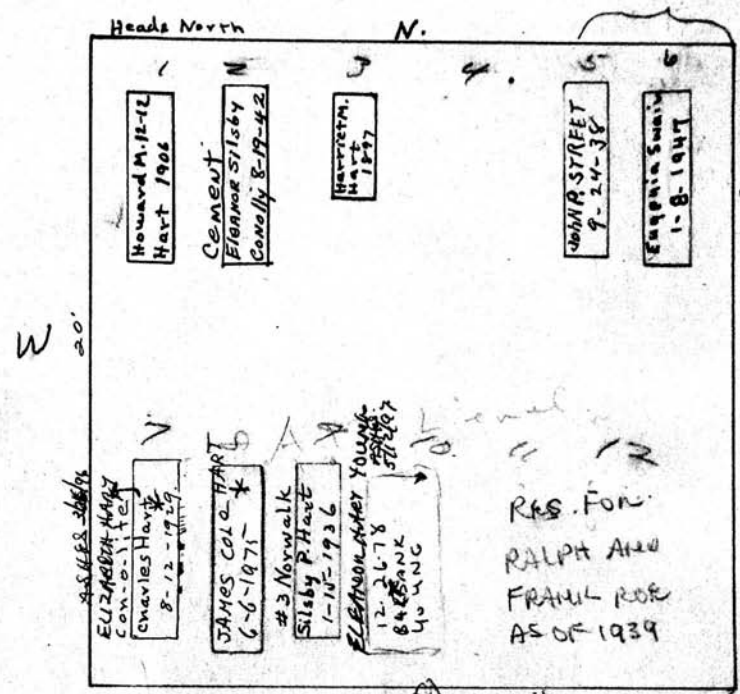 Heads North
N.
1
2
3
4.
5
6
Howard M. 12-12
Hart 1906
Cement
Eleanor Silsby
Conolly 8-19-42
Harriet M.
Hart
1897
John P. STREET
9-24-38
Eugenia Swain
1-8-1947
20'
ASHES
ELIZABETH HART
Con-o-lite
Charles Hart *
8-12-1929
JAMES COLE HART
6-6-1975 *
#3 Norwalk
Silsby P. Hart
1-15-1936
ELEANOR YOUNG
12-26-78
BURBANK
YOUNG
10
11
12
RES. FOR
RALPH AND
FRANK ROE
AS OF 1939